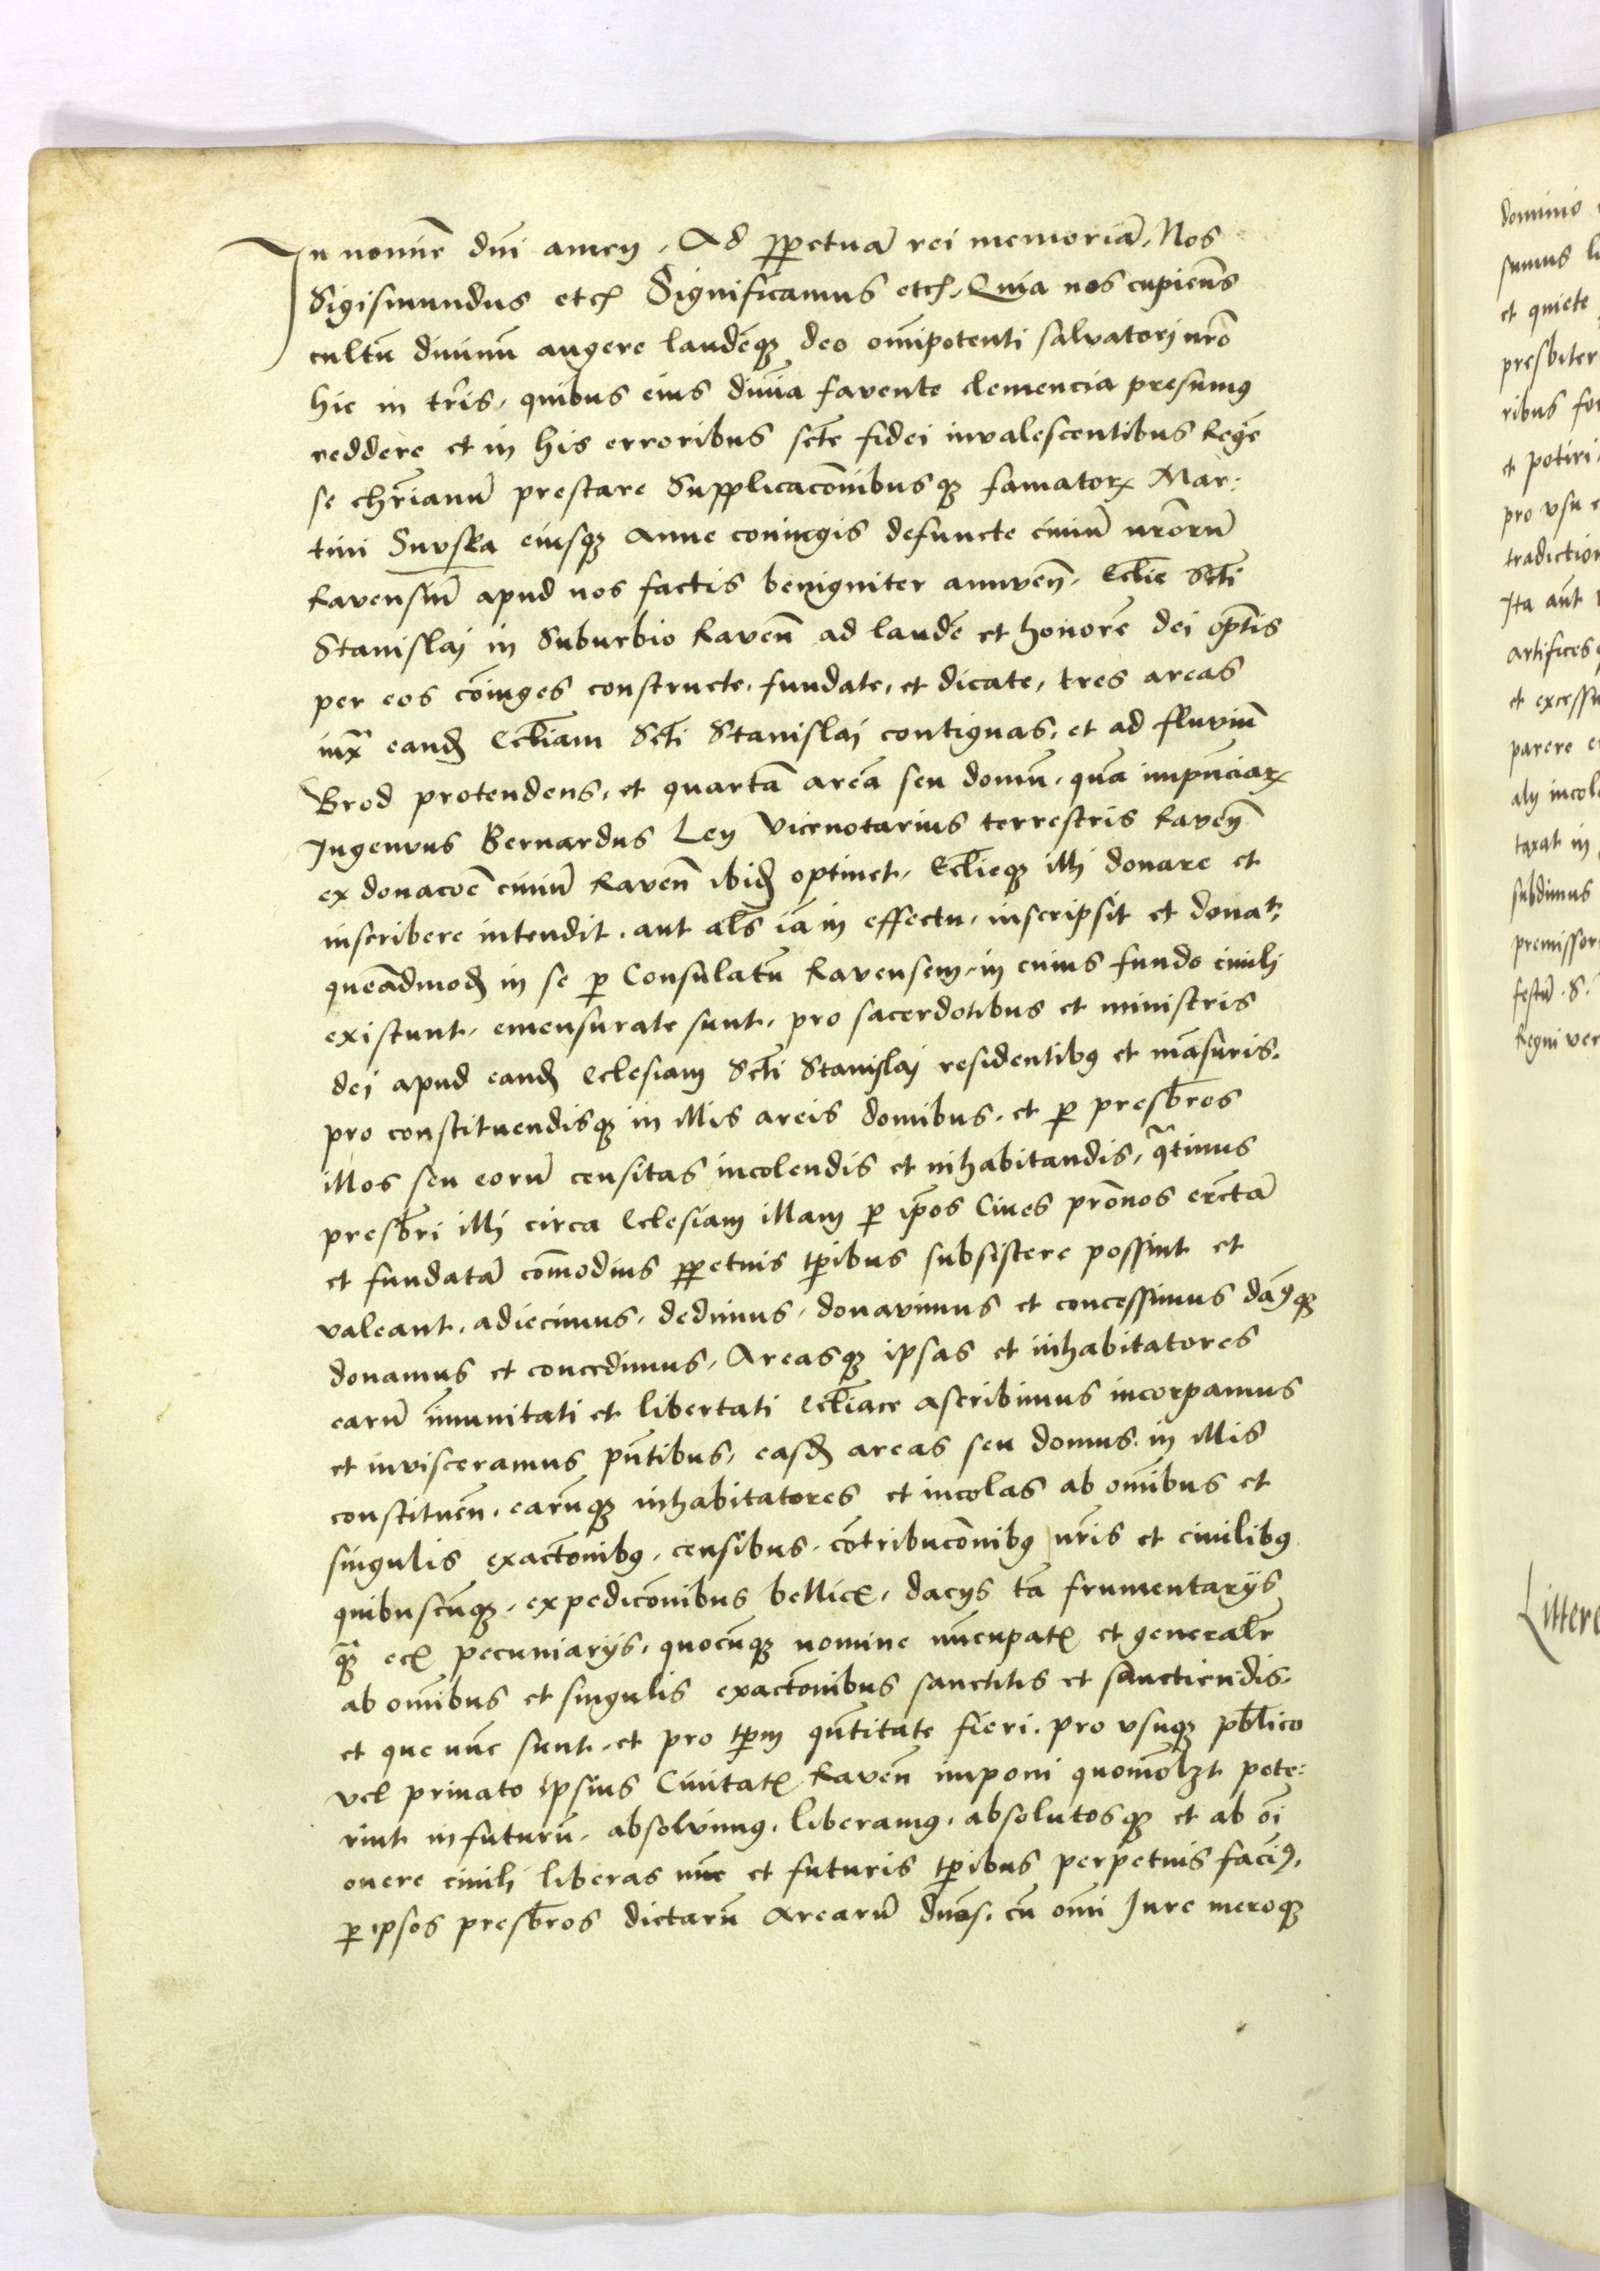 In nomine dni amen. Ad ppetuā rei memoriā. Nos
Sigismundus etc̄ Significamus etc̄. Quia nos cupiens
cultū diuinū augere laudēq3 deo om̄ipotenti salvatori nr̄o
hic in tr̄is, quibus eius diuīa favente clemencia presumꝰ
reddere et in his erroribus sctē fidei invalescentibus Regē
se chr̄ianū prestare Supplicacōnibusq3 famatorꝝ Mar:
tini Suvska eiusq3 Anne coniugis defuncte ciuiū nr̄orū
Ravensiū apud nos factis benigniter annven̄. Eccl̄ie Scti
Stanislaj in Suburbio Raven̄ ad laudē et honorē dei op̄tis
per eos cōiuges constructe, fundate, et dicate, tres areas
iuxᵃ eand̄ Eccl̄iam Scti Stanislaj contiguas, et ad fluviū
Brod protendens, et quartā areā seu domū, quā impn̄ciarꝝ
Ingenuus Bernardus Len Vicenotarius terrestris Raven̄
ex donacōe ciuiū Raven̄ ibid̄ optinet, Eccl̄ieq3 illi donare et
inscribere intendit, aut al̄s iā in effectu, inscripsit et donat,
queādmod̄ in se ꝑ Consulatū Ravensem, in cuius fundo ciuili
existunt, emensurate sunt, pro sacerdotibus et ministris
dei apud eand̄ Eclesiam Scti Stanislaj residentibꝰ et māsuris,
pro constituendisq3 in illis areis domibus, et ꝑ presb̄ros
illos seu eorū censitas incolendis et inhabitandis, q̄tinus
presb̄ri illi circa Eclesiam illam ꝑ ip̄os Ciues prōnos erectā
et fundatā cōmodius ꝑpetuis tp̄ibus subsistere possint et
valeant, adiecimus, dedimus, donavimus et concessimus dāꝰq3
donamus et concedimus, Areasq3 ipsas et inhabitatores
earū im̄unitati et libertati Eccl̄iace ascribimus incorpamus
et invisceramus pn̄tibus, easd̄ areas seu domus in illis
constituen̄, earūq3 inhabitatores et incolas ab om̄ibus et
singulis exactōnibꝰ, censibus, cōtribucōnibꝰ nr̄is et ciuilibꝰ
quibuscūq3, expedicōnibus bellicꝭ, dacijs tā frumentarijs
q̄3 ecꝭ pecuniarijs, quocūq3 nomine nūcupatꝭ et generalr̄
ab om̄ibus et singulis exactōnibus sanctitis et sanctiendis,
et que nūc sunt, et pro tp̄m qn̄titate fieri, pro vsuq3 pb̄lico
vel priuato ipsius Ciuitatꝭ Raven̄ imponi quomōl3t pote:
rint in futurū, absolvimꝰ, liberamꝰ, absolutosq3 et ab oī
onere ciuili liberas nūc et futuris tp̄ibus perpetuis faciꝰ,
ꝑ ipsos presb̄ros dictarū Arearū dn̄os, cū om̄i Iure meroq3
dominio
sumus
et quiete
presbiter
ribus
et potiri
pro vsu
tradiction
Ita aūt
artifices
et excessu
parere
alij incol
taxat in
subdimus
premissor
festū. S.
Regni ver
Littere